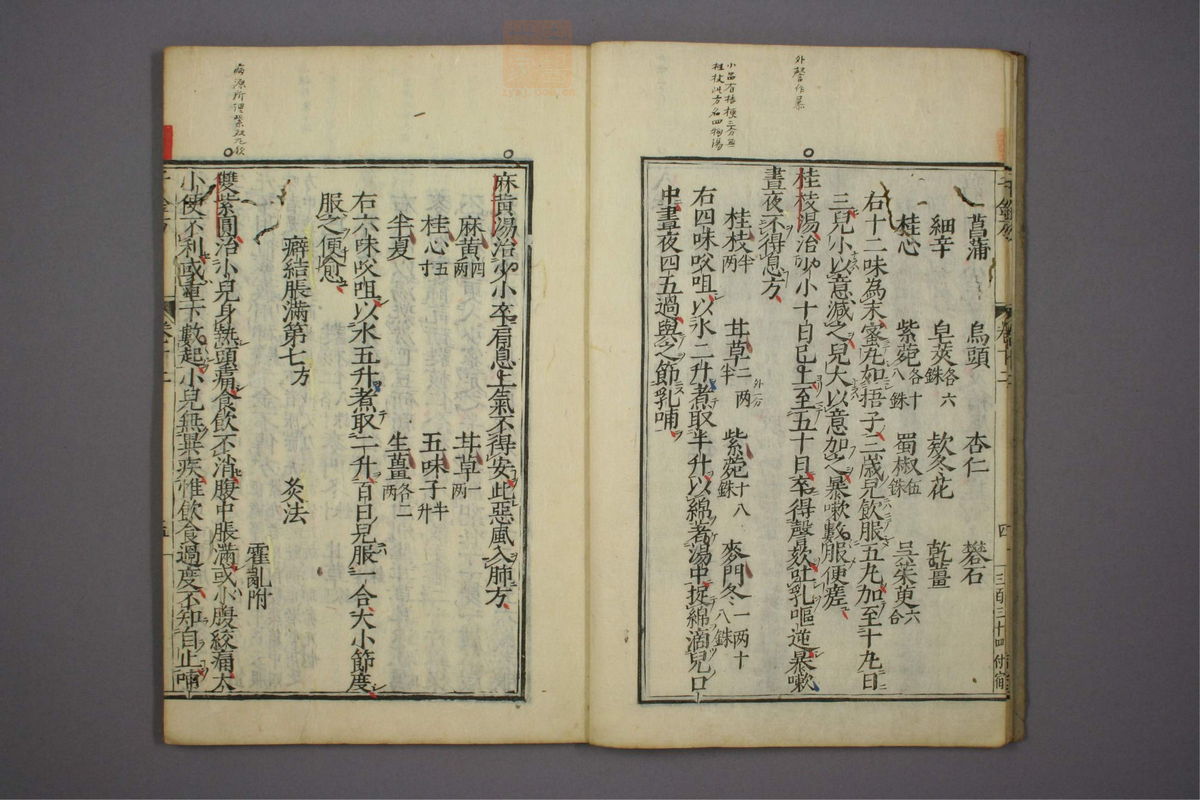 外聲作暴
小品有桔梗三分無
桂枝此方名四物湯
千金方　卷十二　四　三百三十四
菖蒲　烏頭　杏仁　礬石
細辛　皁莢各六銖　欵冬花　乾薑
桂心　紫菀各十八銖　蜀椒伍銖　吳茱萸六合
右十二味為末蜜丸如梧子三歲兒飲服五丸加至十丸日
三兒小以意減之兒大以意加之暴嗽數服便瘥
桂枝湯治少小十日已上至五十日卒得聲欬吐乳嘔逆暴嗽
晝夜不得息方
桂枝半兩　甘草二兩半　紫菀十八銖　麥門冬一兩十八銖
外二分
右四味㕮咀以水二升煮取半升以綿著湯中捉綿滴兒口
中晝夜四五過與之節乳哺
麻黃湯治少小卒肩息上氣不得安此惡風入肺方
麻黃四兩　甘草一兩
桂心五寸　五味子半升
半夏　生薑各二兩
右六味㕮咀以水五升煮取二升百日兒服一合大小節度
服之便愈
癖結脹滿第七方　灸法
霍亂附
雙紫圓治小兒身熱頭痛食飲不消腹中脹滿或小腹絞痛大
小便不利或重下數起小兒無異疾惟飲食過度不知自止哺